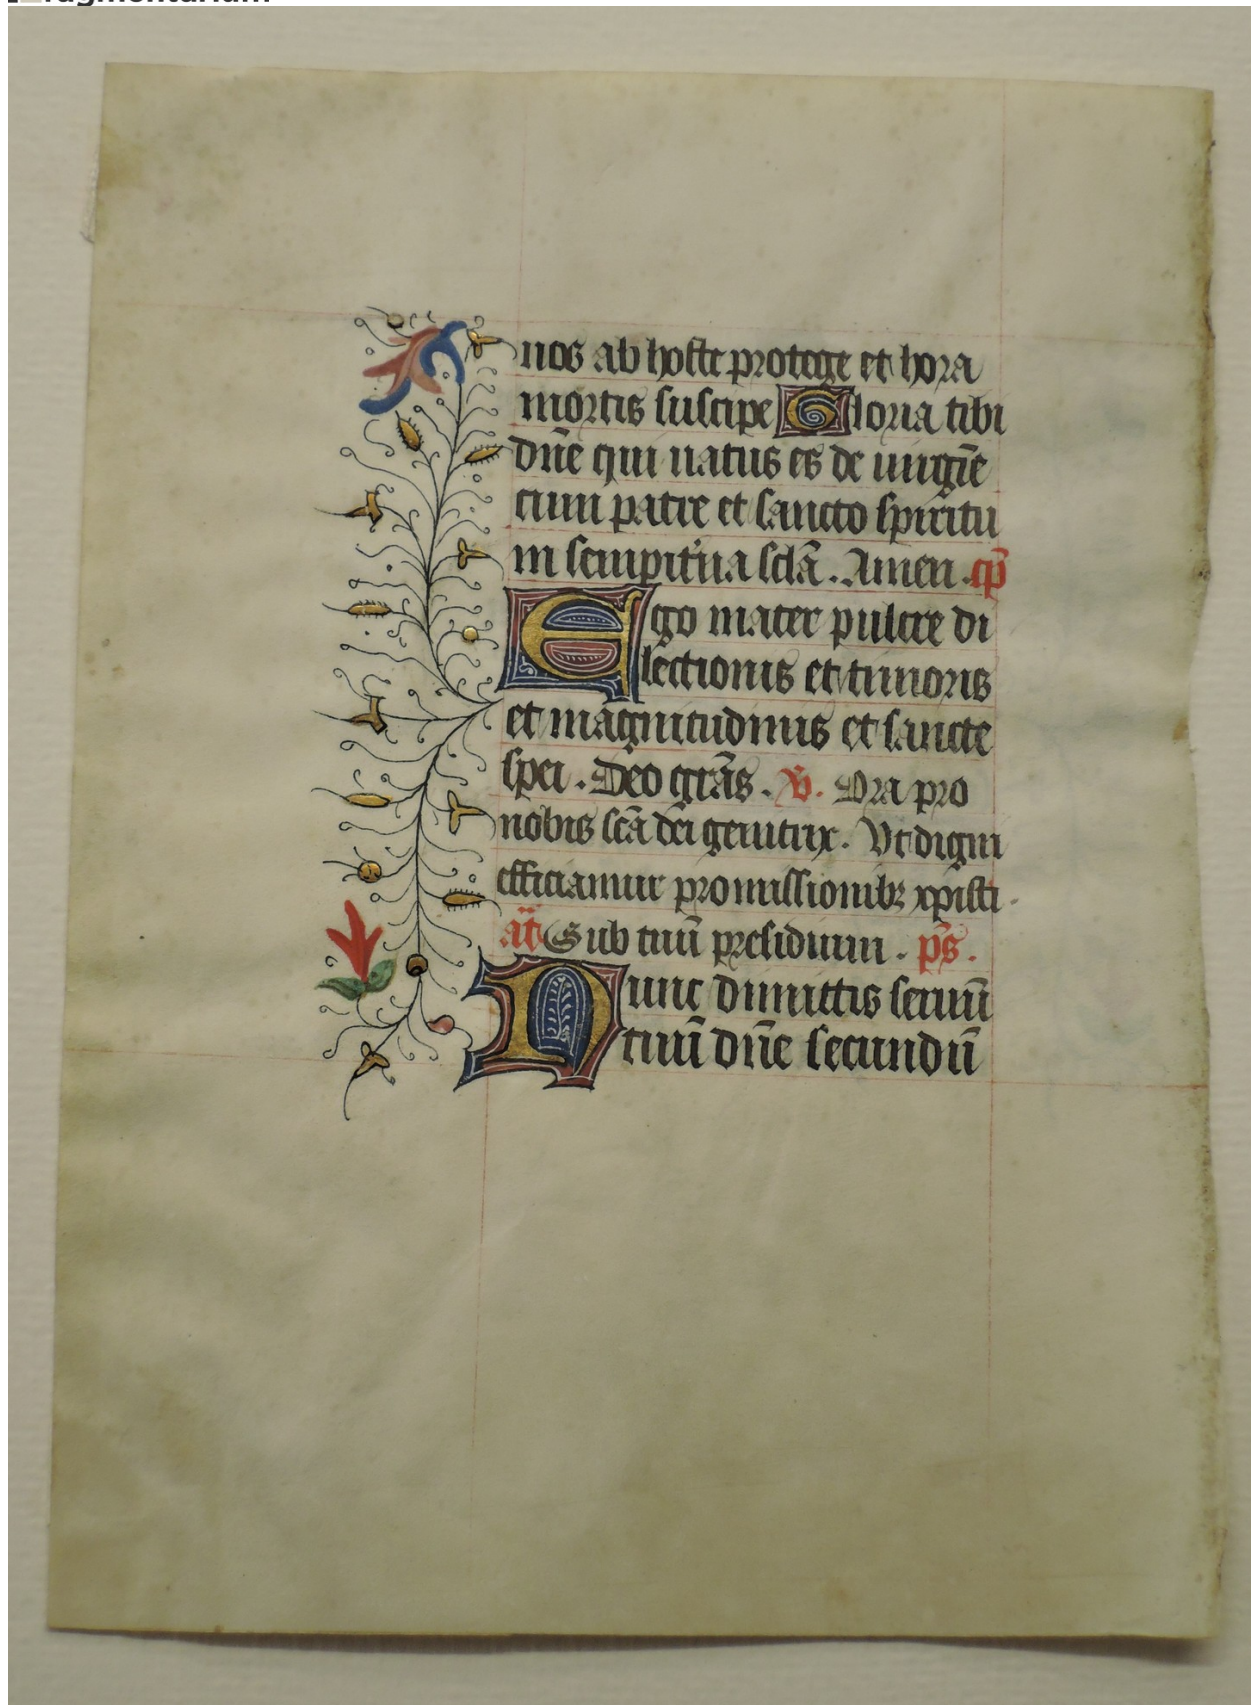 fragmentarium
nos ab hoste protege et hora
mortis suscipe Gloria tibi
dn̄e qui natus es de uirgīe
cum patre et sancto spiritu
in sempit'na sclā. Amen. cp̄
Ego mater pulcre di
lectionis et timoris
et magnitudinis et sancte
spei. Deo grās. V. Ora pro
nobis scā dei genitrix. Vt digni
efficiamur promissionibꝫ xpisti.
añ Sub tuū presidium. ps̄.
Nunc dimittis seruū
tuū dn̄e secundū